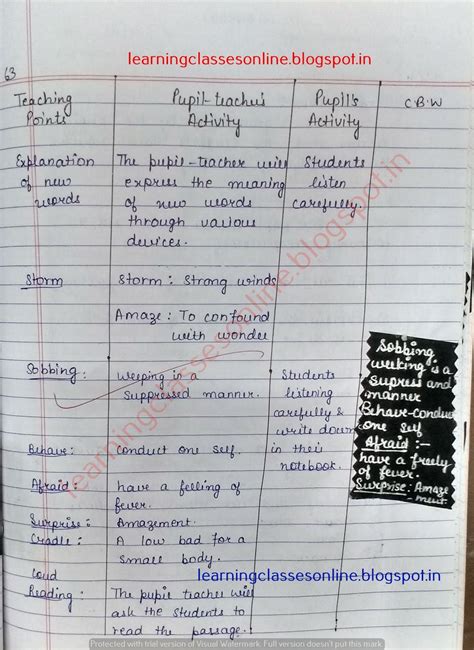 learningclassesonline.blogspot.in
63
Teaching Points
Pupil-teacher's Activity
Pupil's Activity
C.B.W
Explanation of new words
The pupil-teacher will express the meaning of new words through various devices.
Students listen carefully.
Storm
Storm : Strong winds
Amaze : To confound with wonder
Sobbing :
Weeping in a suppressed manner.
Students listening carefully & write down in their notebook.
Behave :
conduct one self.
Afraid :
have a felling of fever.
Surprise :
Amazement.
Cradle :
A low bad for a small body.
Loud Reading :
The pupil teacher will ask the students to read the passage.
Sobbing
weeking is a
supress and
manner
Behave-conduct
one self
Afraid :-
have a freely
of fever.
Surprise: Amaze
ment.
learningclassesonline.blogspot.in
learningclassesonline.blogspot.in
Protected with trial version of Visual Watermark. Full version doesn't put this mark.